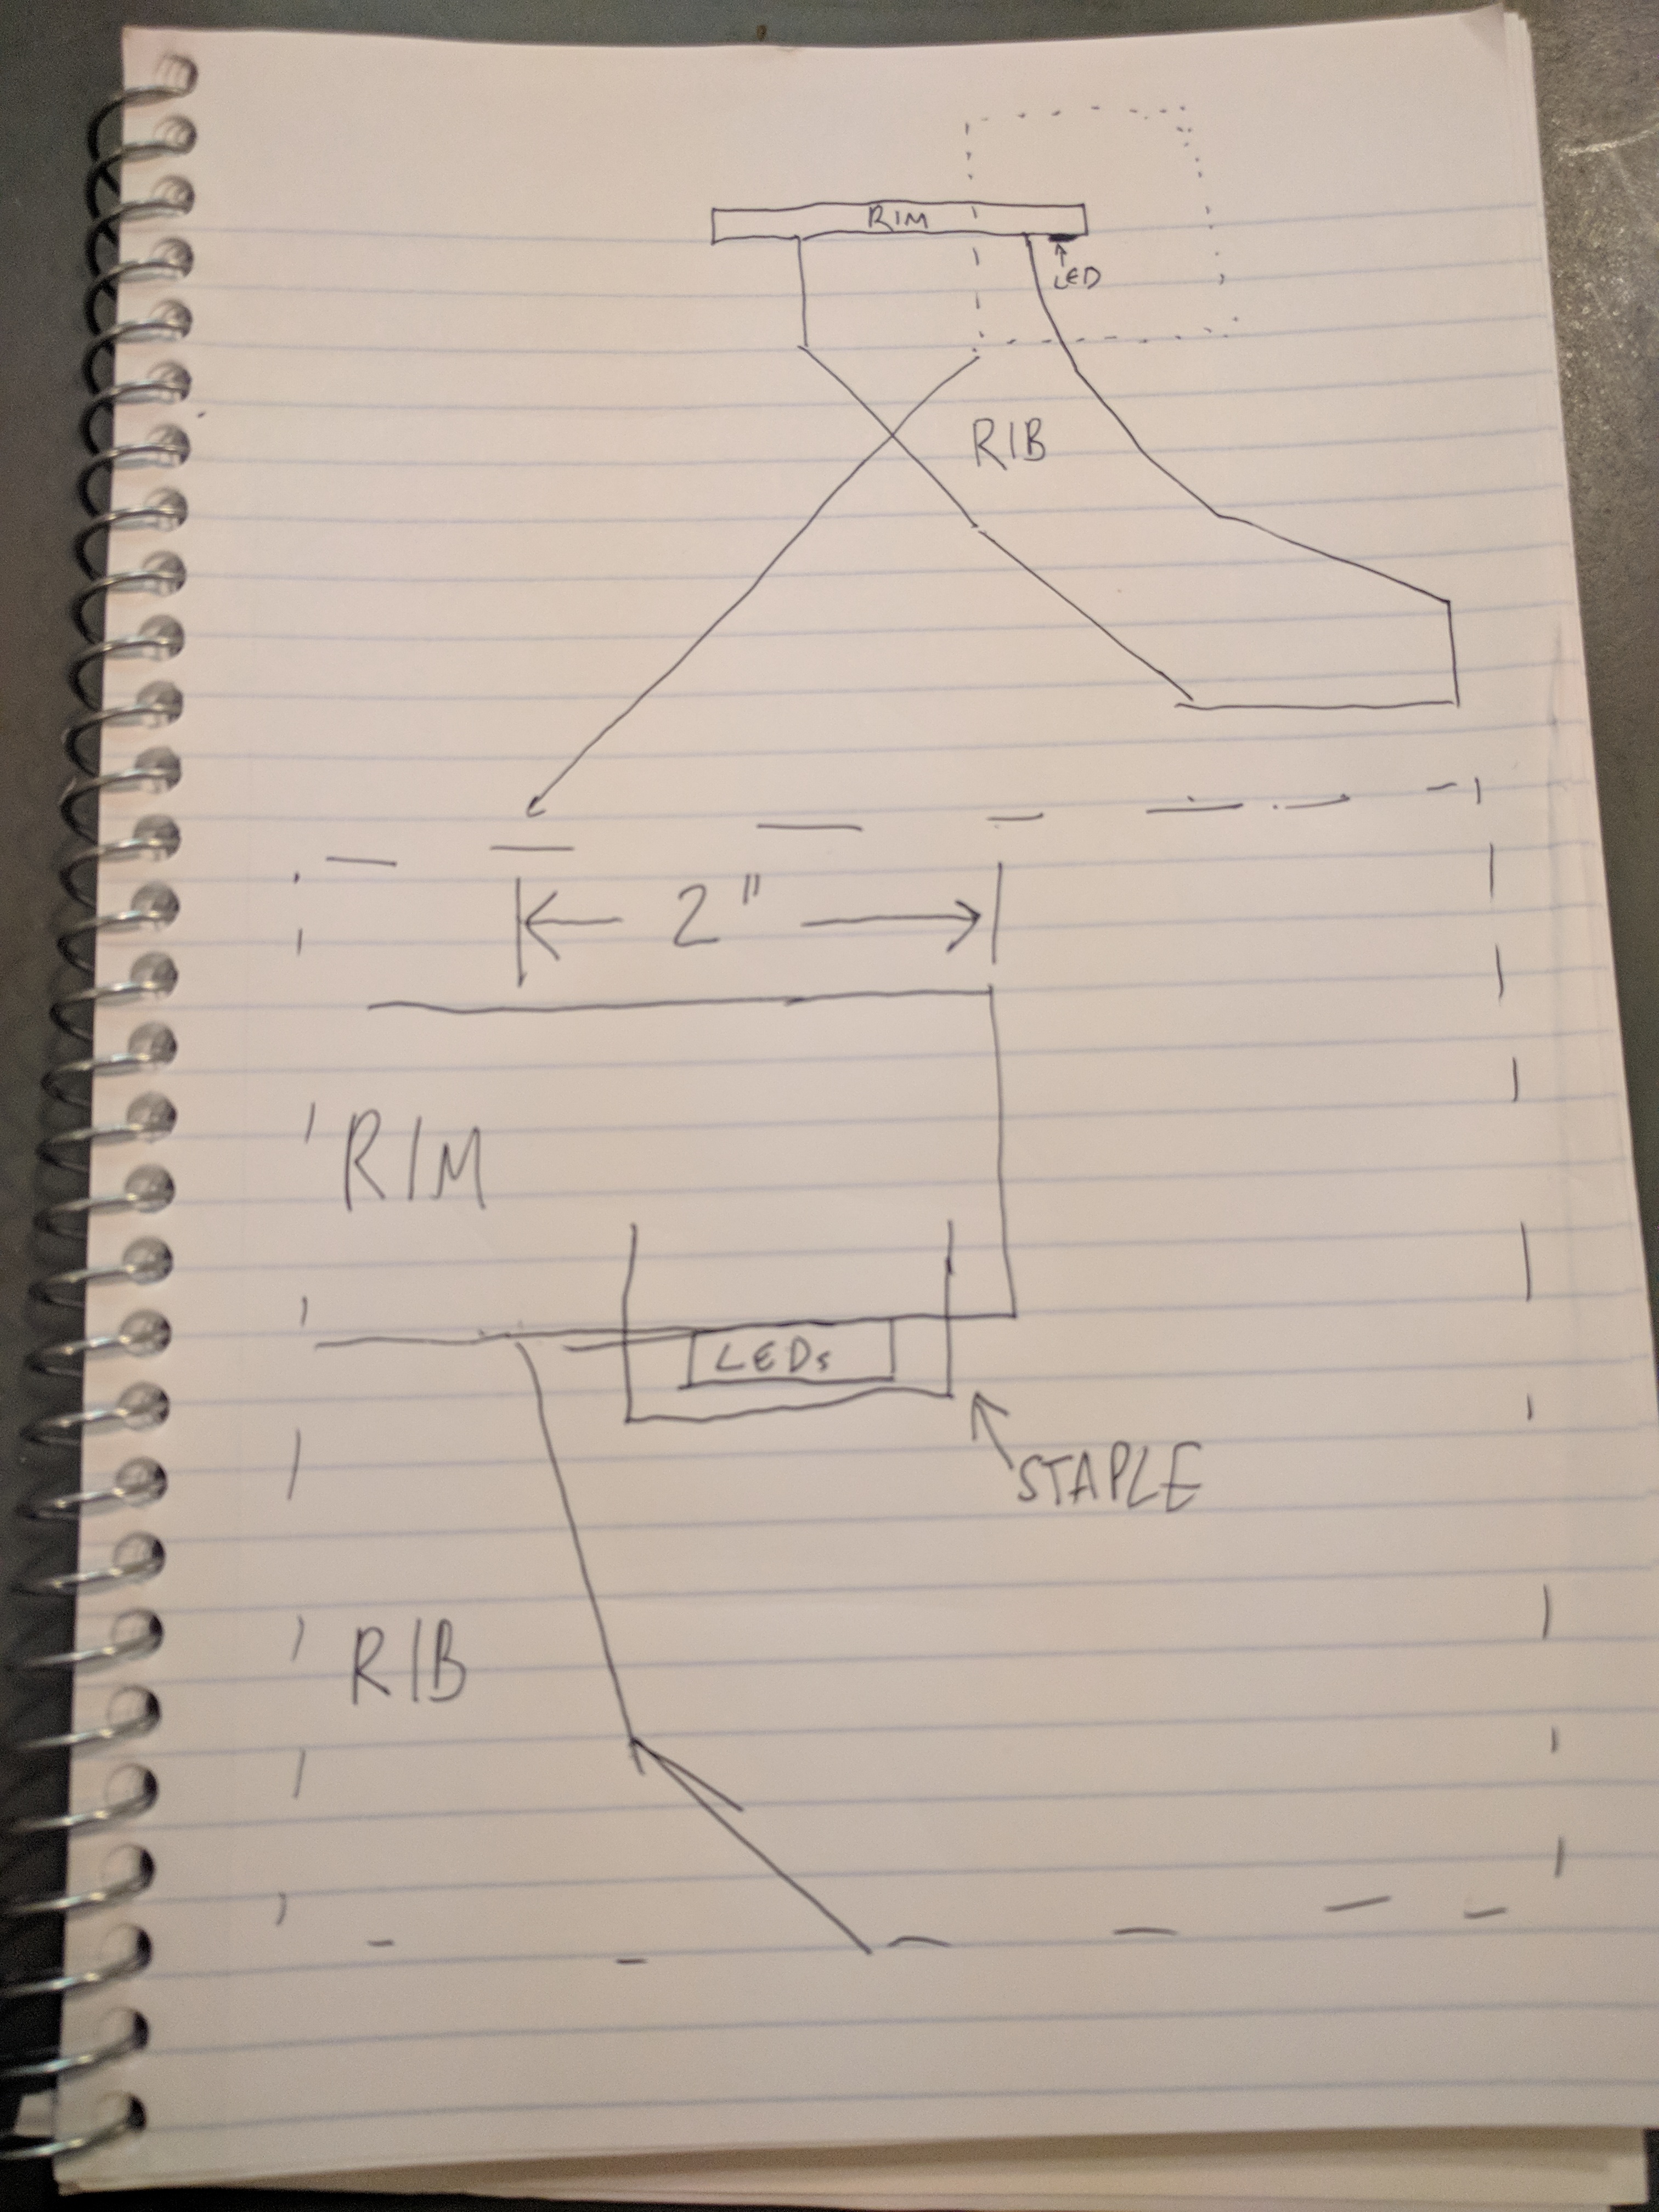 RIM
LED
RIB
2"
RIM
LEDs
STAPLE
RIB